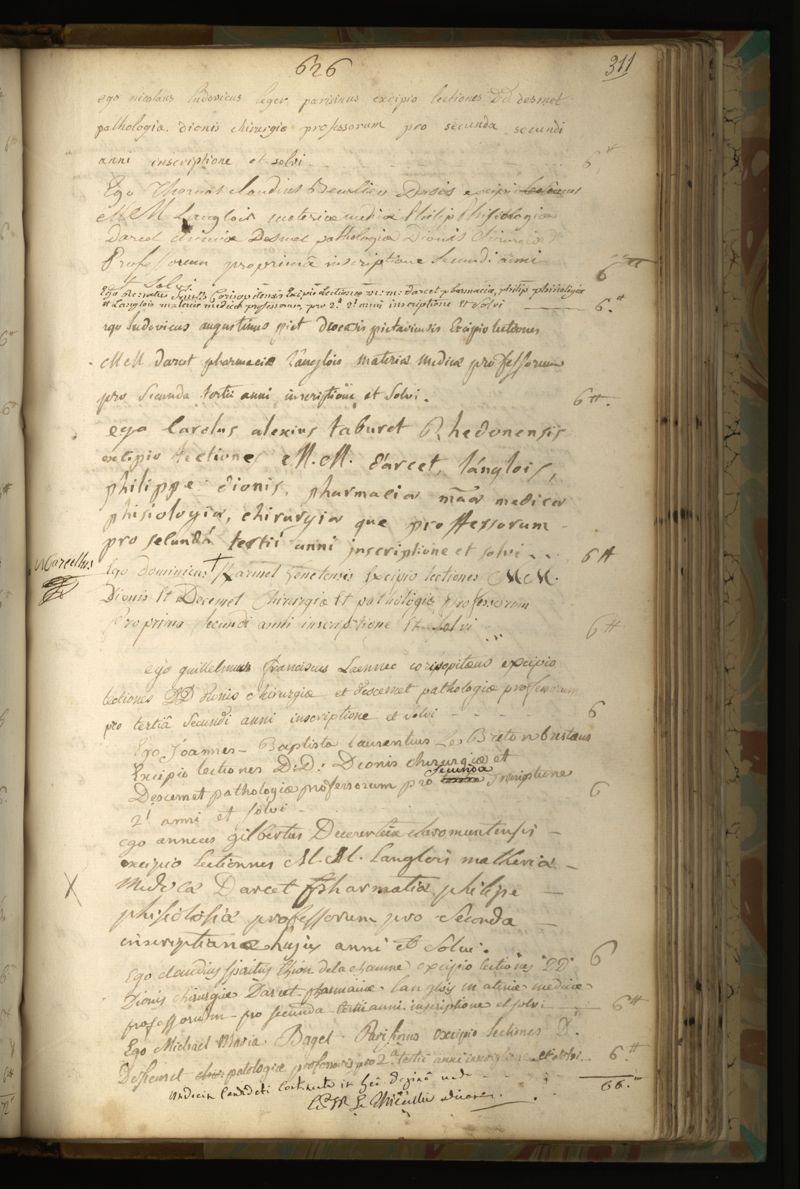 626
311
ego nicolaus ludovicus leger parisinus excipio lectiones DD desmet
pathologia dionis chirurgia professorum pro secunda secundi
anni inscriptione et solvi 6tt
Ego Thomas claudius Dasis excipio lectiones
MM Langlois materiæ mediæ Philip Phisiologiæ
Darcet chimiæ Desmet pathologiæ Dionis Chirurgiæ
Professorum pro primâ inscriptione secundi anni
et Solvi 6tt
Ego Renatus Corisopitensis Excipio Lectiones m: m: Darcet pharmaciæ, philip phisiologiæ
et Langlois materiæ medicæ professorum, pro 2a 2i anni inscriptione et Solvi 6.tt
ego ludovicus augustinus piet diocesis pictaviensis Excipio lectiones
MM darcet pharmaciæ langlois materiæ medicæ professorum
pro secunda tertii anni inscriptione et solvi. 6tt.
ego Carolus alexius taburet Rhedonensis
excipio lectiones M.M. d'arcet, langlois,
philippe dionis, pharmacia mãa medica
phisiologia, chirurgia que proffessorum
pro secundâ tertii anni inscriptione et solvi... 6tt
Marcellus
Ego dominicus + Karmel Venetensis Excipio lectiones MM.
Dionis Et Decemet Chirurgiæ Et pathologiæ professorum
Pro prima secundi anni inscriptione Et Solvi 6tt
ego guillelmus franciscus Laennec corisopitæus excipio
lectiones DD dionis chirurgiæ et descemet pathologiæ professorum
pro tertiâ secundi anni inscriptione et solvi 6
Ego Joannes-Baptista laurentius Le Breton
Excipio lectiones D.D. Dionis chirurgiæ et
Descemet pathologiæ professorum pro secunda inscriptione
2i anni et solvi 6
ego anneus gilbertus claromuntensis
excipio lectionnes M.M. Langlois matheria
X
medica Darcet Pharmatia philipe
phisiolosia professorum pro seconda
inscriptiona hujus anni et solvi. 6
Ego claudius spiritus Thion dela chaume excipio lectiones DD
Dionis chirurgiæ Darcet pharmaciæ langlois materiæ medicæ
professorum pro secunda tertii anni inscriptione et solvi 6tt
Ego Michael Maria Baget Parisinus excipio lectiones D.
Descemet patologiæ professoris pro 2a tertii anni inscriptione et solvi 6.tt
Undecim Candidati contenti in hac pagina 66.tt
Le Thieullier decanus